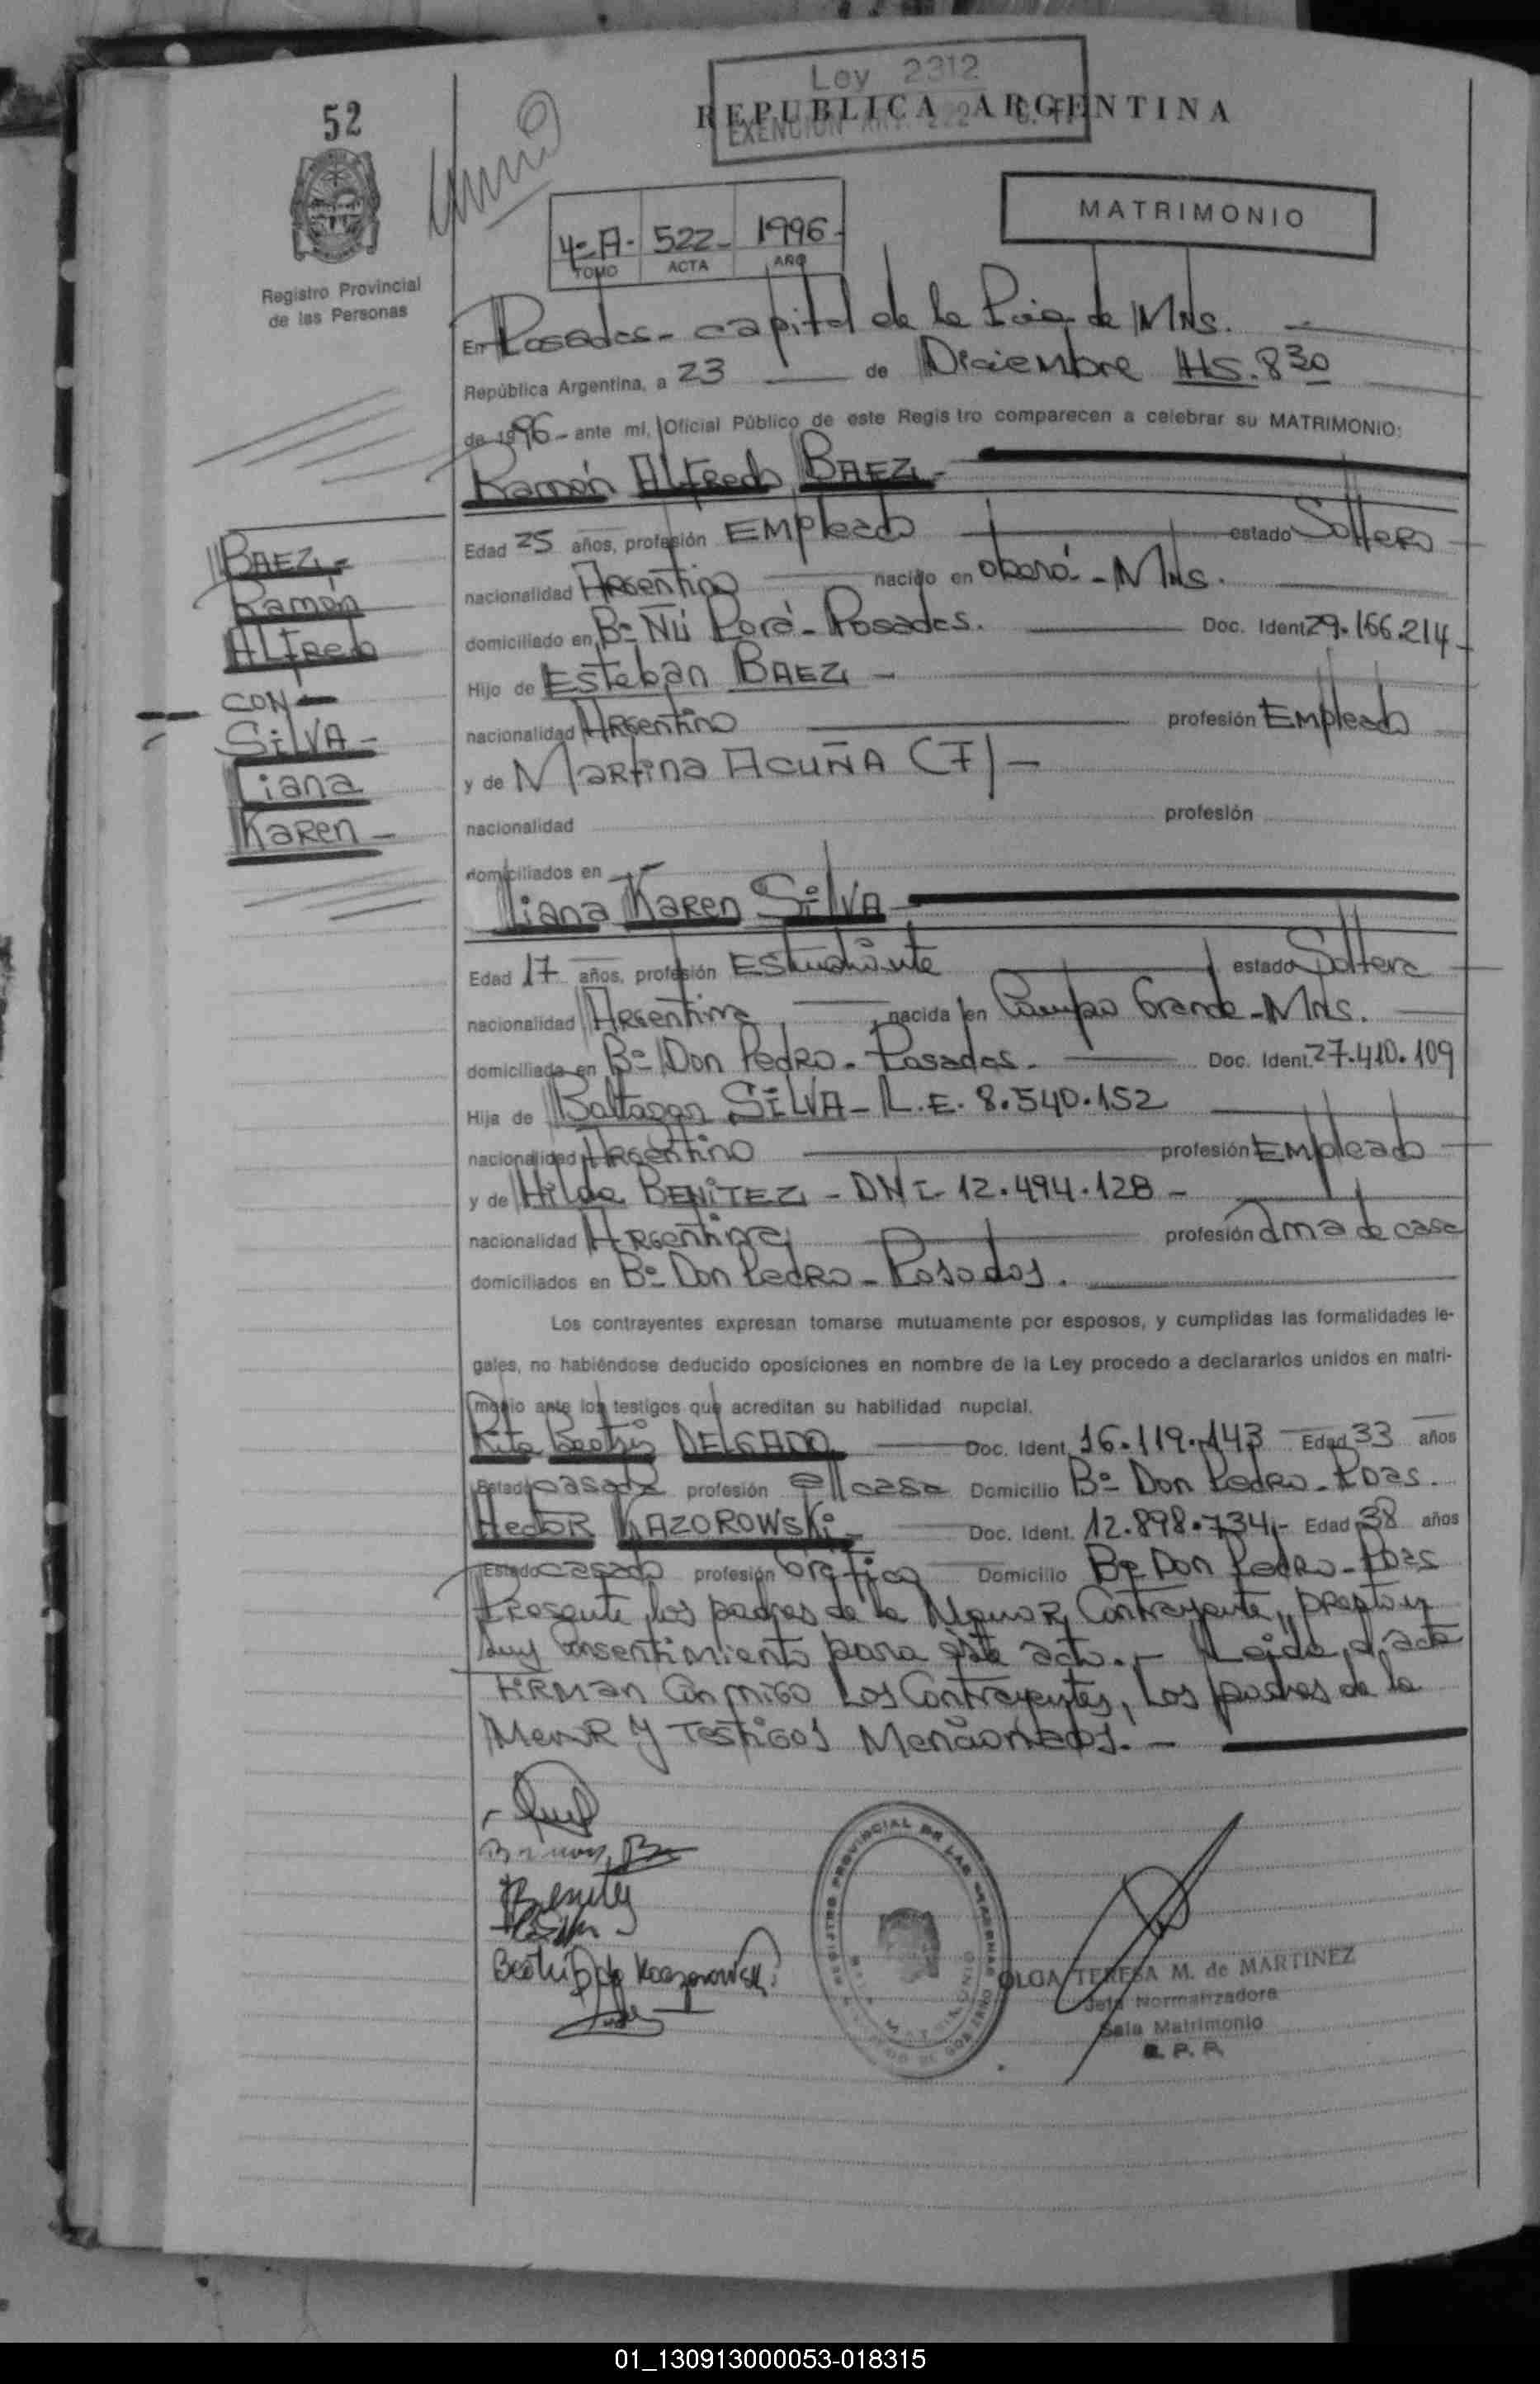 52
Ley 2312
REPUBLICA ARGENTINA
EXENCION ART. 222
Registro Provincial
de las Personas
4-A- 522- 1996-
TOMO ACTA AÑO
MATRIMONIO
En Posadas- capital de la Pcia de Mns.
República Argentina, a 23 de Diciembre HS. 8 30
de 1996- ante mi, Oficial Público de este Registro comparecen a celebrar su MATRIMONIO:
Ramón Alfredo BAEZ-
BAEZ-
Ramón
Alfredo
CON-
SILVA-
Liana
Karen-
Edad 25 años, profesión Empleado estado Soltero
nacionalidad Argentino nacido en oberá-Mns.
domiciliado en Bº Ñú Porá- Posadas. Doc. Ident 29.166.214-
Hijo de Esteban BAEZ-
nacionalidad Argentino profesión Empleado
y de Martina ACUÑA (F)-
nacionalidad profesión
domiciliados en -
Liana Karen SILVA-
Edad 17 años, profesión Estudiante estado Soltera
nacionalidad Argentina nacida en Campo Grande-Mns.
domiciliada en Bº Don Pedro- Posadas- Doc. Ident. 27.410.109
Hija de Baltazar SILVA- L.E. 8.540.152
nacionalidad Argentino profesión Empleado
y de Hilda BENITEZ- DNI- 12.494.128-
nacionalidad Argentina profesión ama de casa
domiciliados en Bº Don Pedro- Posadas.
Los contrayentes expresan tomarse mutuamente por esposos, y cumplidas las formalidades le-
gales, no habiéndose deducido oposiciones en nombre de la Ley procedo a declararlos unidos en matri-
monio ante los testigos que acreditan su habilidad nupcial.
Rita Beatriz DELGADO Doc. Ident. 16.119.143 Edad 33 años
Estado casada profesión casa Domicilio Bº Don Pedro- Pdas.
Hector KAZOROWSKI- Doc. Ident. 12.898.734- Edad 38 años
Estado casado profesión Gráfico Domicilio Bº Don Pedro- Pdas
Presente los padres de la Menor Contrayente, prestan
su consentimiento para este acto.- Leida el acta
Firman Conmigo Los Contrayentes, Los padres de la
Menor y Testigos Mencionados.-
Benitez
REGISTRO PROVINCIAL DE LAS PERSONAS
OLGA TERESA M. de MARTINEZ
Jefa Normatizadora
Sala Matrimonio
R. P. P.
01_130913000053-018315